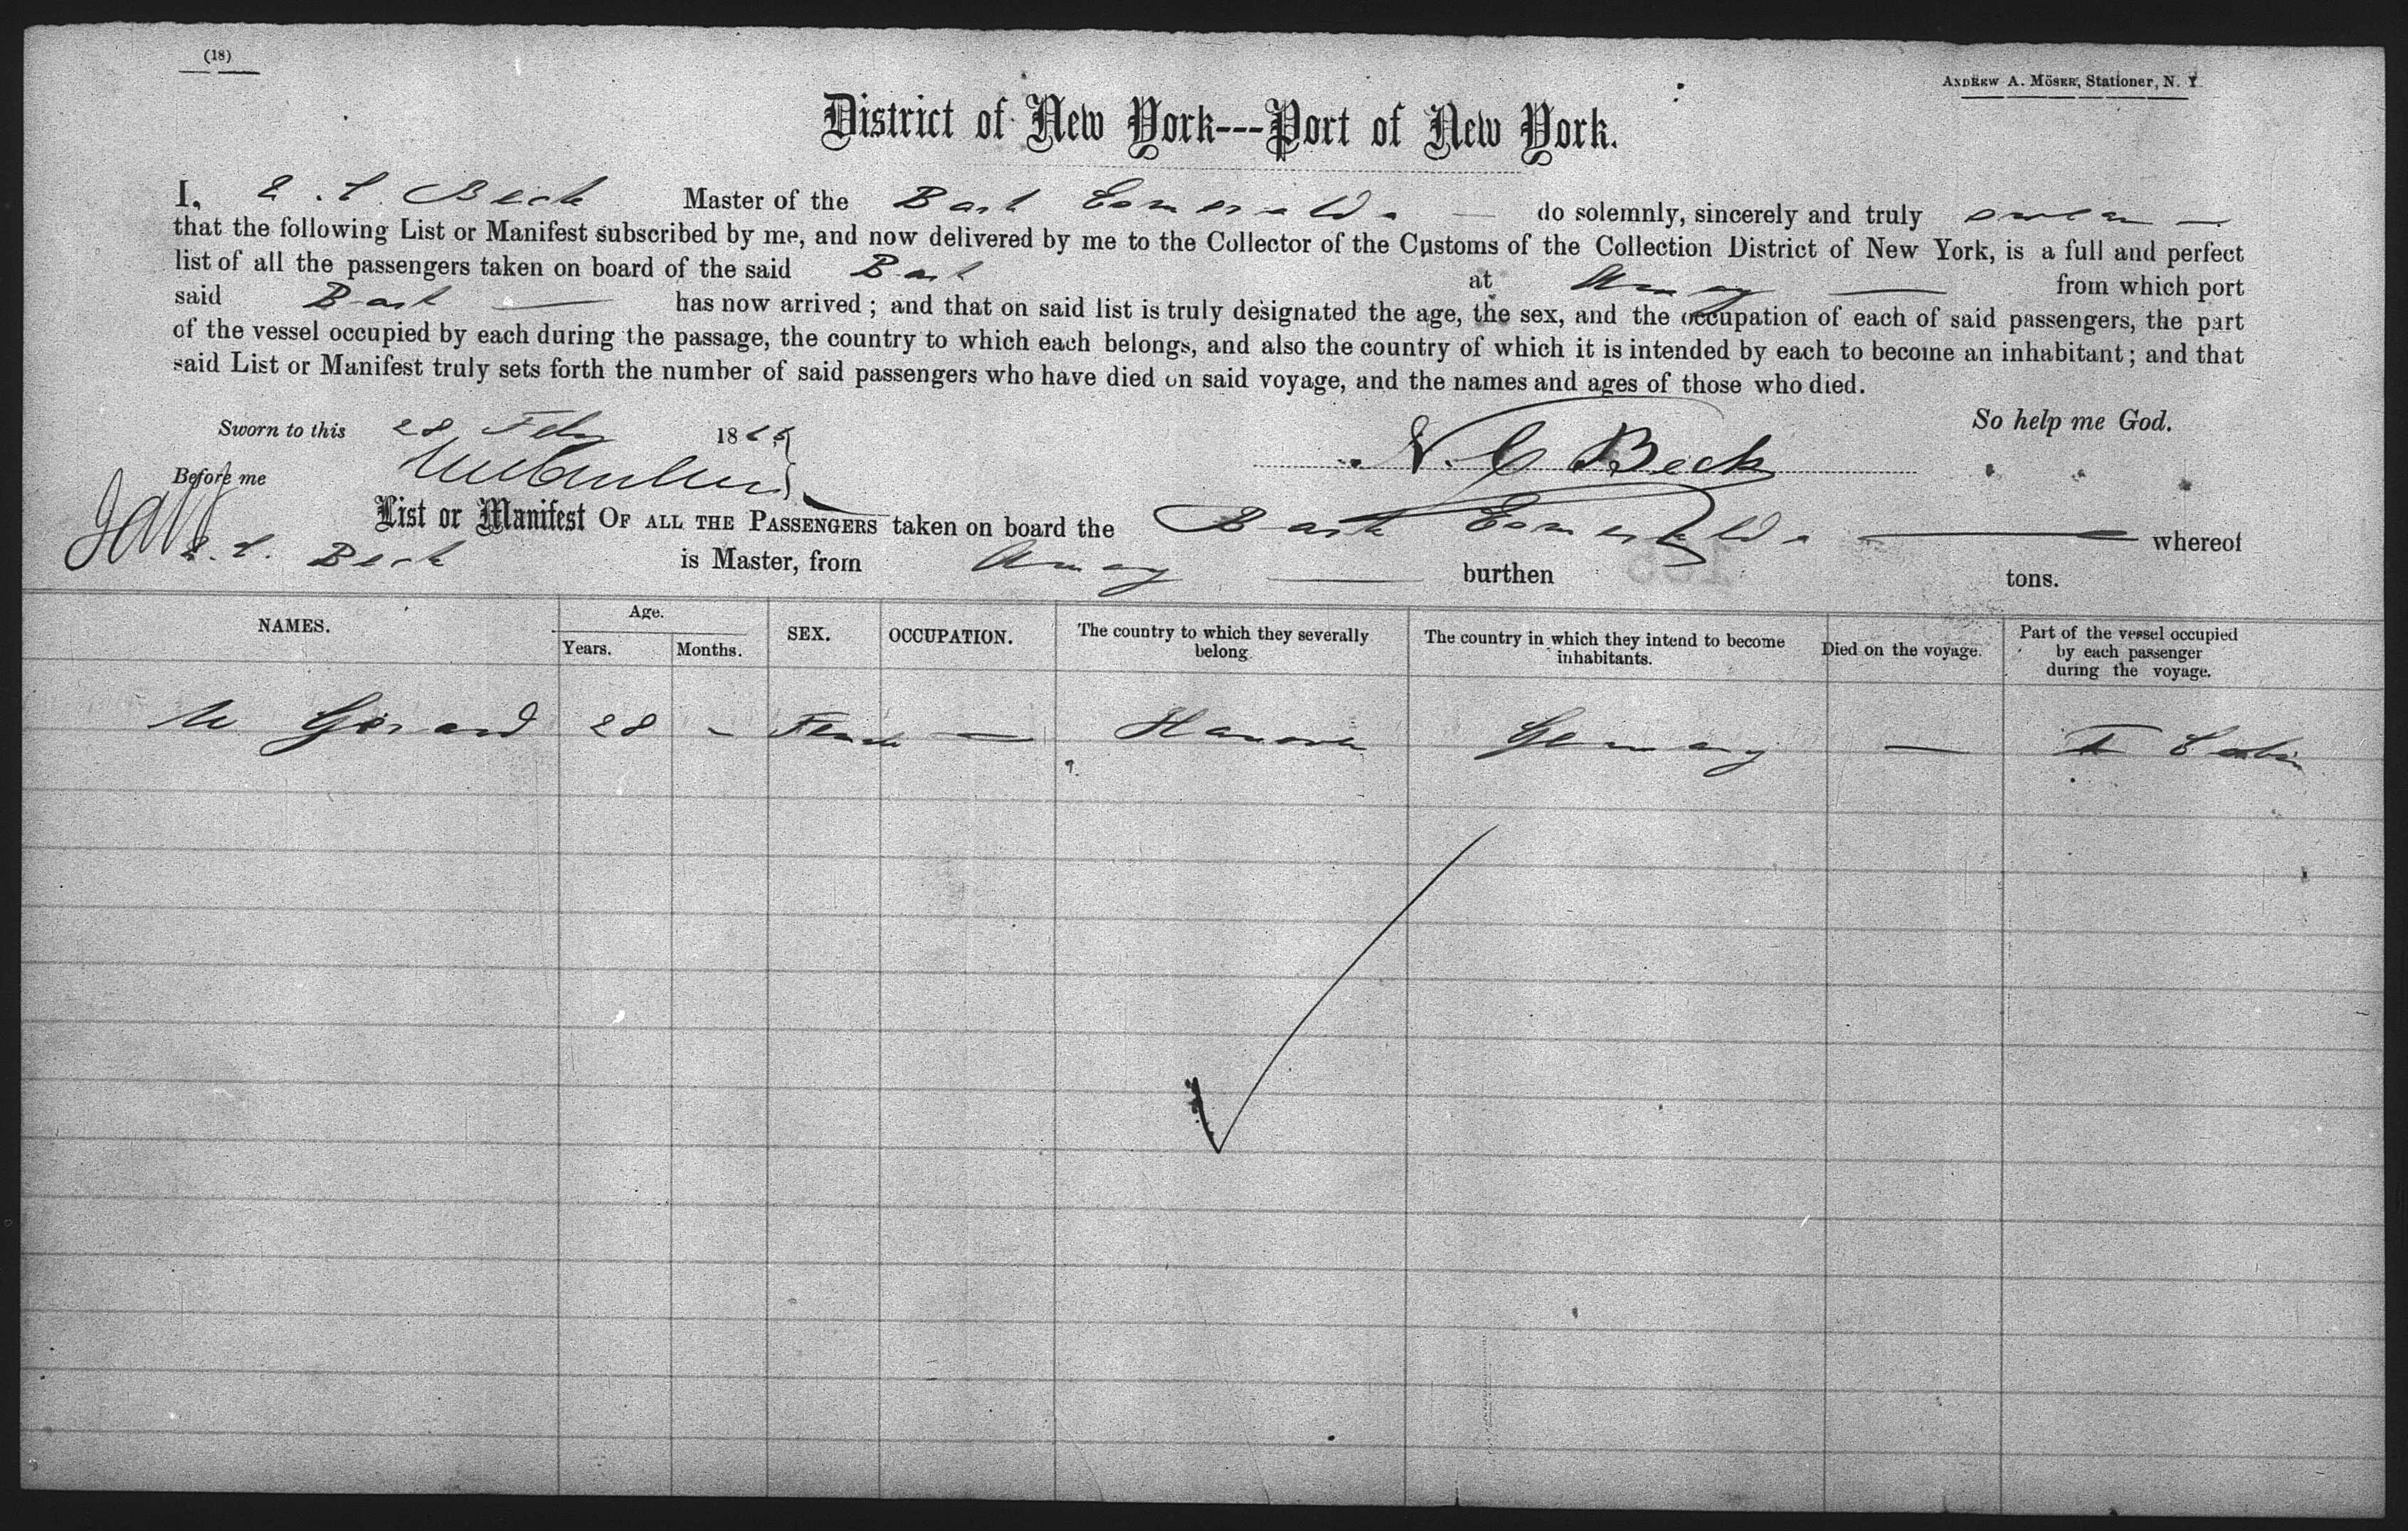 (18)
ANDREW A. MÖSER, Stationer, N. Y.
District of New York---Port of New York.
I, E. C. Beck Master of the Bark Esmeralda — do solemnly, sincerely and truly swear —
that the following List or Manifest subscribed by me, and now delivered by me to the Collector of the Customs of the Collection District of New York, is a full and perfect
list of all the passengers taken on board of the said Bark at Amoy — from which port
said Bark — has now arrived; and that on said list is truly designated the age, the sex, and the occupation of each of said passengers, the part
of the vessel occupied by each during the passage, the country to which each belongs, and also the country of which it is intended by each to become an inhabitant; and that
said List or Manifest truly sets forth the number of said passengers who have died on said voyage, and the names and ages of those who died.
So help me God.
Sworn to this 28 Feby 186
N. C. Beck
Before me
List or Manifest OF ALL THE PASSENGERS taken on board the Bark Esmeralda — whereof
E. C. Beck is Master, from Amoy — burthen tons.
NAMES. Age. Years. Months. SEX. OCCUPATION. The country to which they severally belong. The country in which they intend to become inhabitants. Died on the voyage. Part of the vessel occupied by each passenger during the voyage.
Gerard 28 - Female — Hanover Germany — Cabin